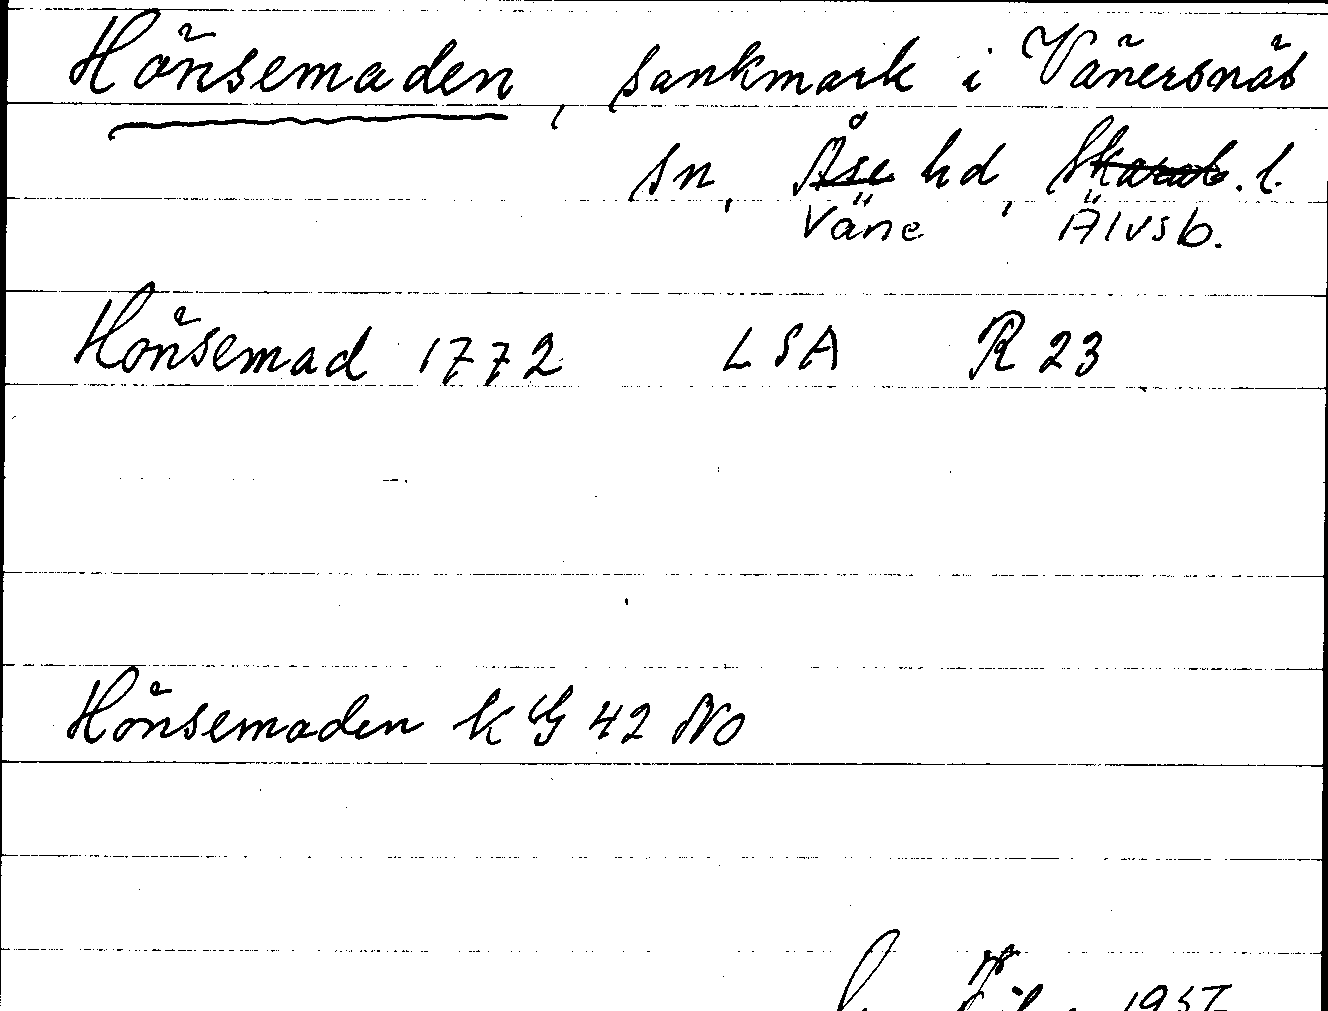 Hönsemaden, sankmark i Vänersnäs
sn, Åse hd, Skarab. l.
Väne Älvsb.
Hönsemad 1772 LSA R 23
Hönsemaden KG 42 No
1957